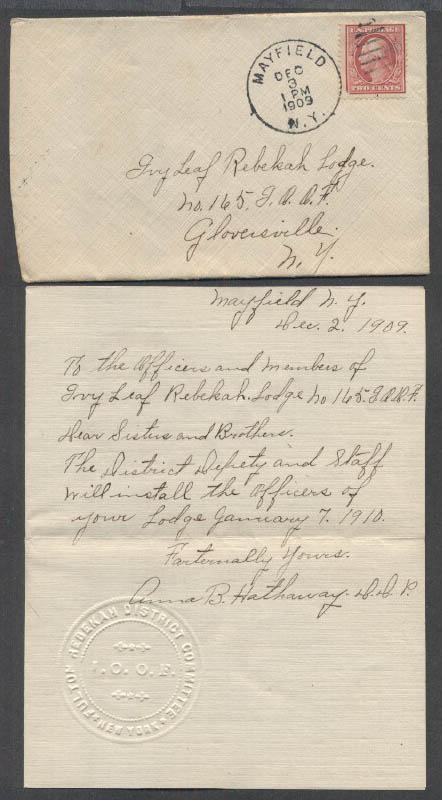 MAYFIELD
DEC
3
1 PM
1909
N.Y.
TWO CENTS
Ivy Leaf Rebekah Lodge.
No. 165. I.O.O.F.
Gloversville.
N.Y.
Mayfield N.Y.
Dec. 2. 1909.
To the Officers and Members of
Ivy Leaf Rebekah. Lodge No 165. I.O.O.F.
Dear Sisters and Brothers.
The District Depety and Staff
Will install the Officers of
your Lodge January 7. 1910.
Farternally Yours.
Anna B. Hathaway. D.D.P.
REBEKAH DISTRICT COMMITTEE
I.O.O.F.